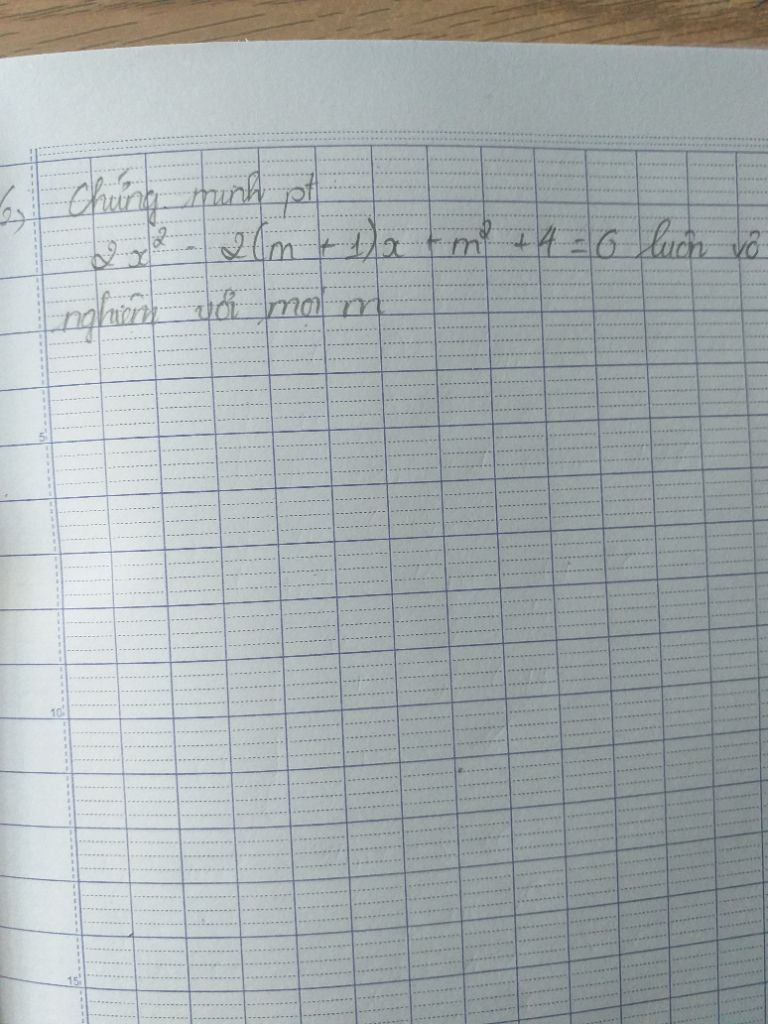 6, Chứng minh pt
2x² - 2(m + 1)x + m² + 4 = 0 luôn vô
nghiệm với mọi m
5
10
15